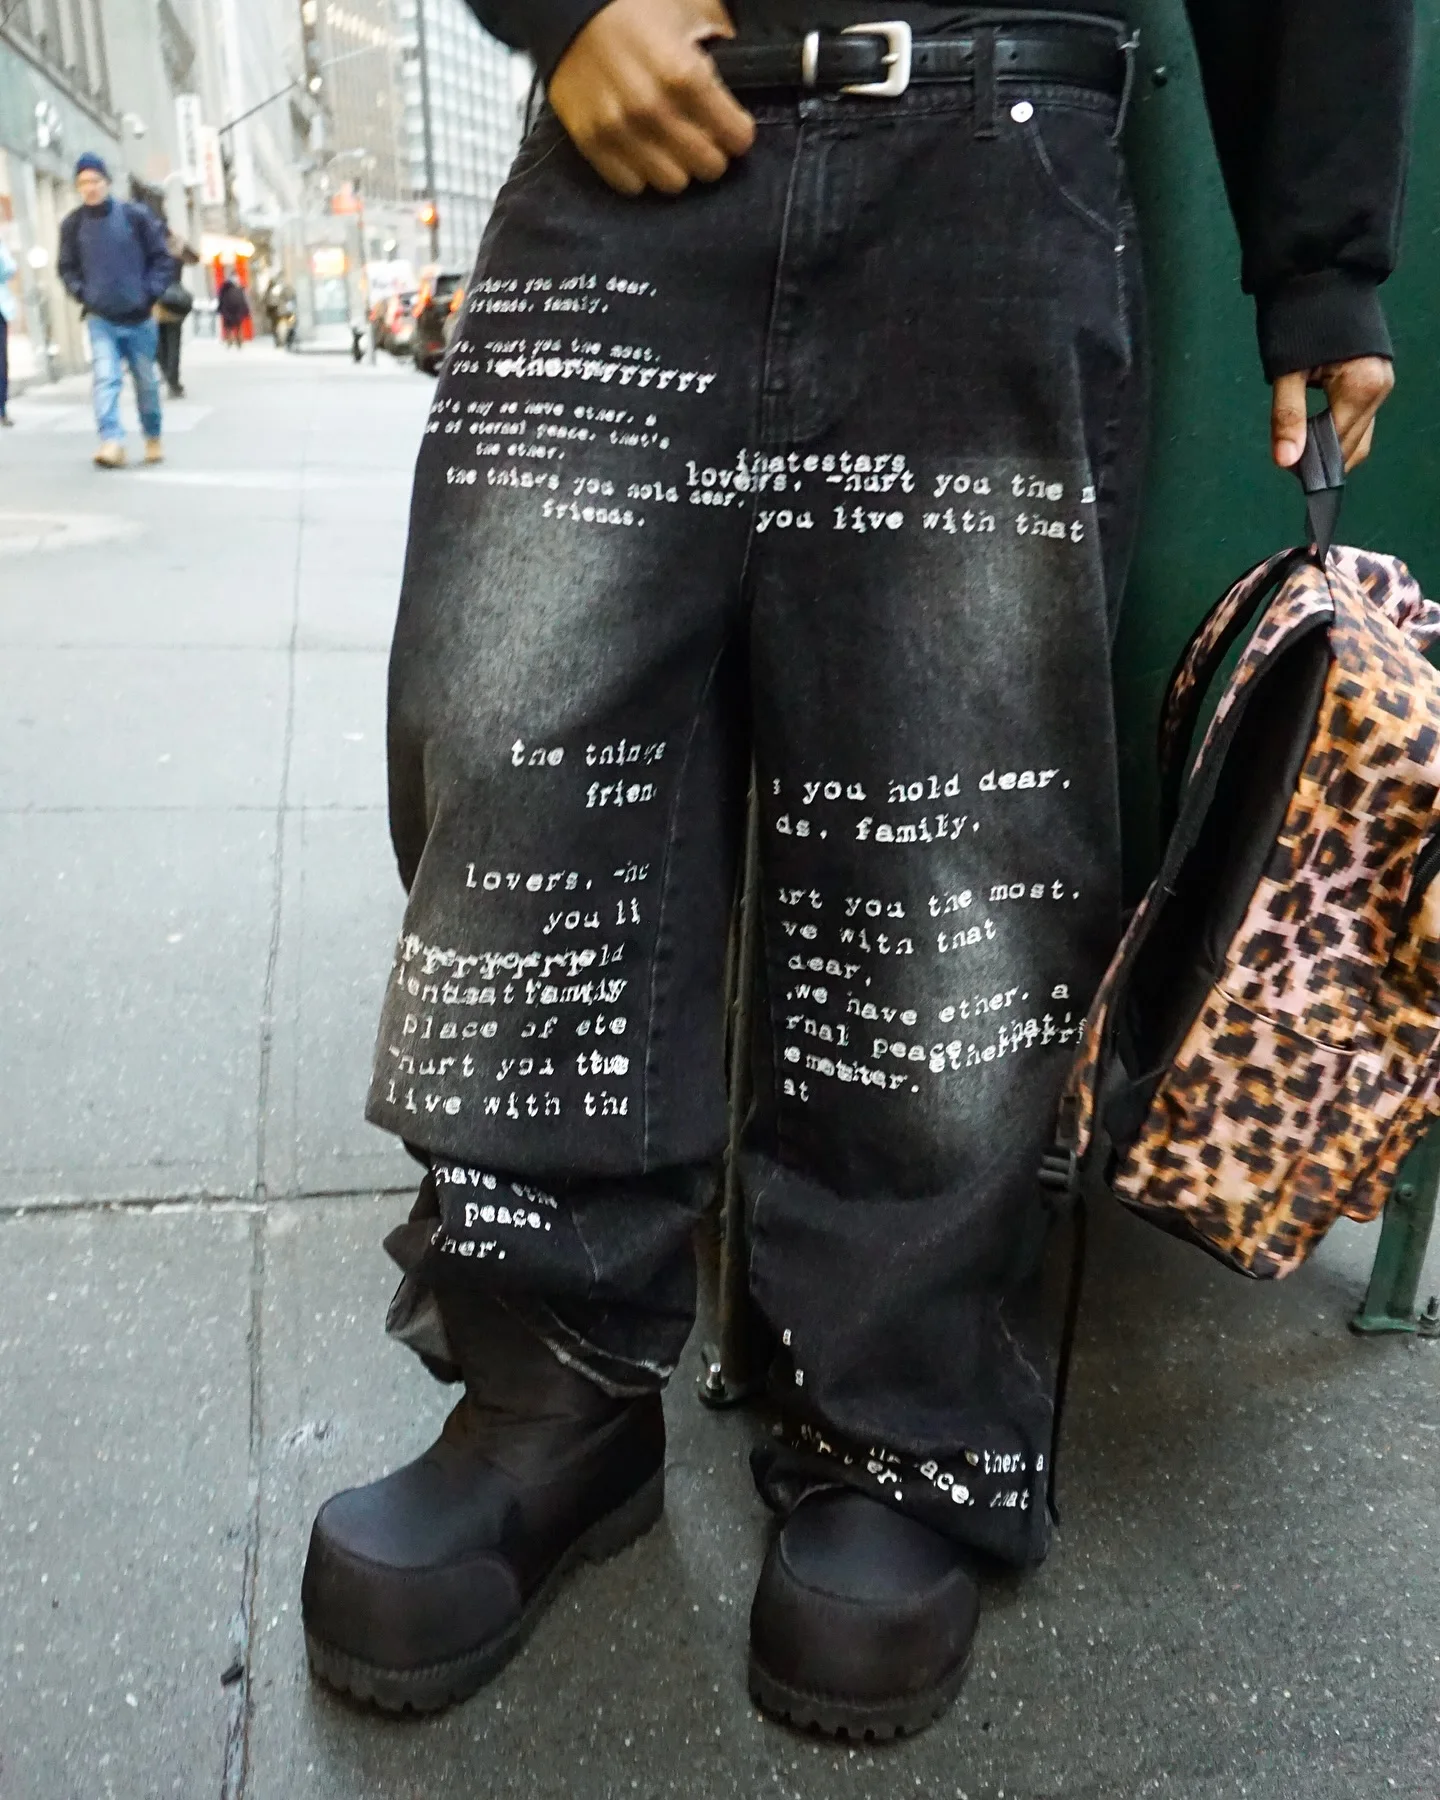 you hold dear,
friends. family.
-hurt you the most.
you
etherrrrrrrrr
why we have ether. a
of eternal peace. that's
the ether.
the things you hold dear.
friends.
ihatestars
lovers. -hurt you the
you live with that
the things
frien
s you hold dear.
ds. family.
lovers. -hu
you li
urt you the most.
ve with that
dear,
hold
family
place of ete
-hurt you the
live with tha
.we have ether. a
rnal peace. that's
etherrrrr
at
have ethe
peace.
her.
a
s
ether. a
ace. that
er.